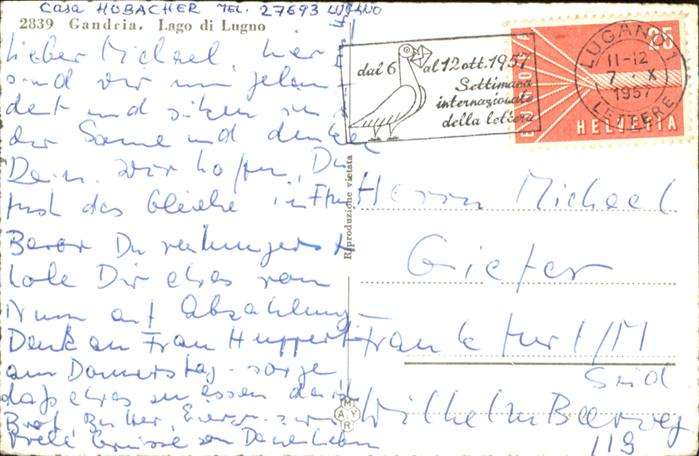 Casa HUBACHER TEL. 27693 LUGANO
2839 Gandria. Lago di Lugno
Lieber Michael, hier
sind wir nun gelan
det und sitzen in
der Sonne und denken
Dein. Wir hoffen, Du
tust das Gleiche in Ffm
Bevor Du verhungerst
hole Dir etwas von
Numm auf Abzahlung
Denk an Frau Huppert
am Donnerstag - sorge
daß etwas zu essen da ist
Brot, Butter, Eier
Viele Grüsse von Deinen Lieben
Reproduzione vietata
MAYR
dal 6 al 12 ott. 1957
Settimana
internazionale
della lettera
LUGANO 1
11-12
7 · X
1957
LETTERE
EUROPA
25
HELVETIA
Herrn Michael
Giefer
Frankfurt/M
Süd
Wilhelm Beerweg
119